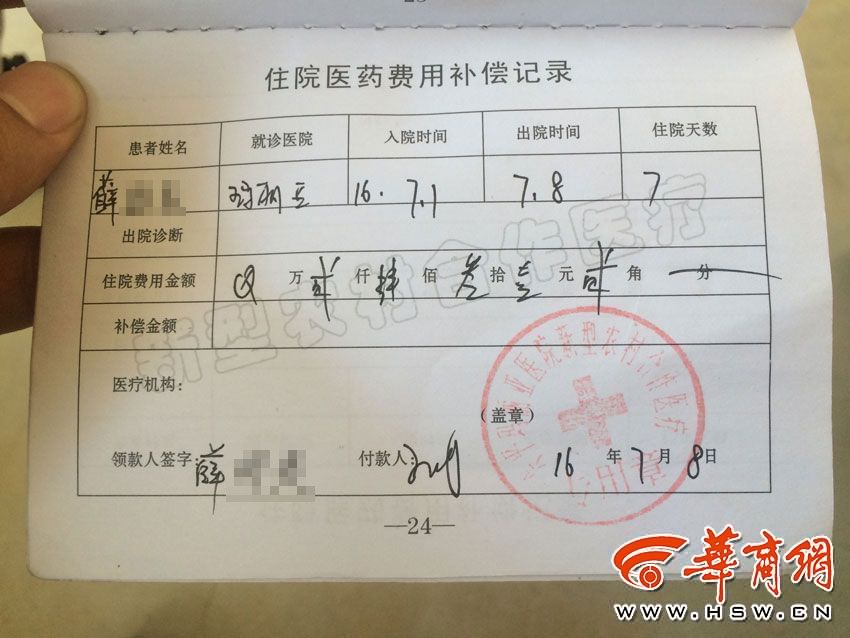 住院医药费用补偿记录
患者姓名 就诊医院 入院时间 出院时间 住院天数
薛 16.7.1 7.8 7
出院诊断
住院费用金额 万 仟 佰 拾 元 角 一 分
补偿金额
新型农村合作医疗
医疗机构：
（盖章）
领款人签字：薛 付款人： 16年7月8日
医院新型农村合作医疗
—24—
华商网
WWW.HSW.CN